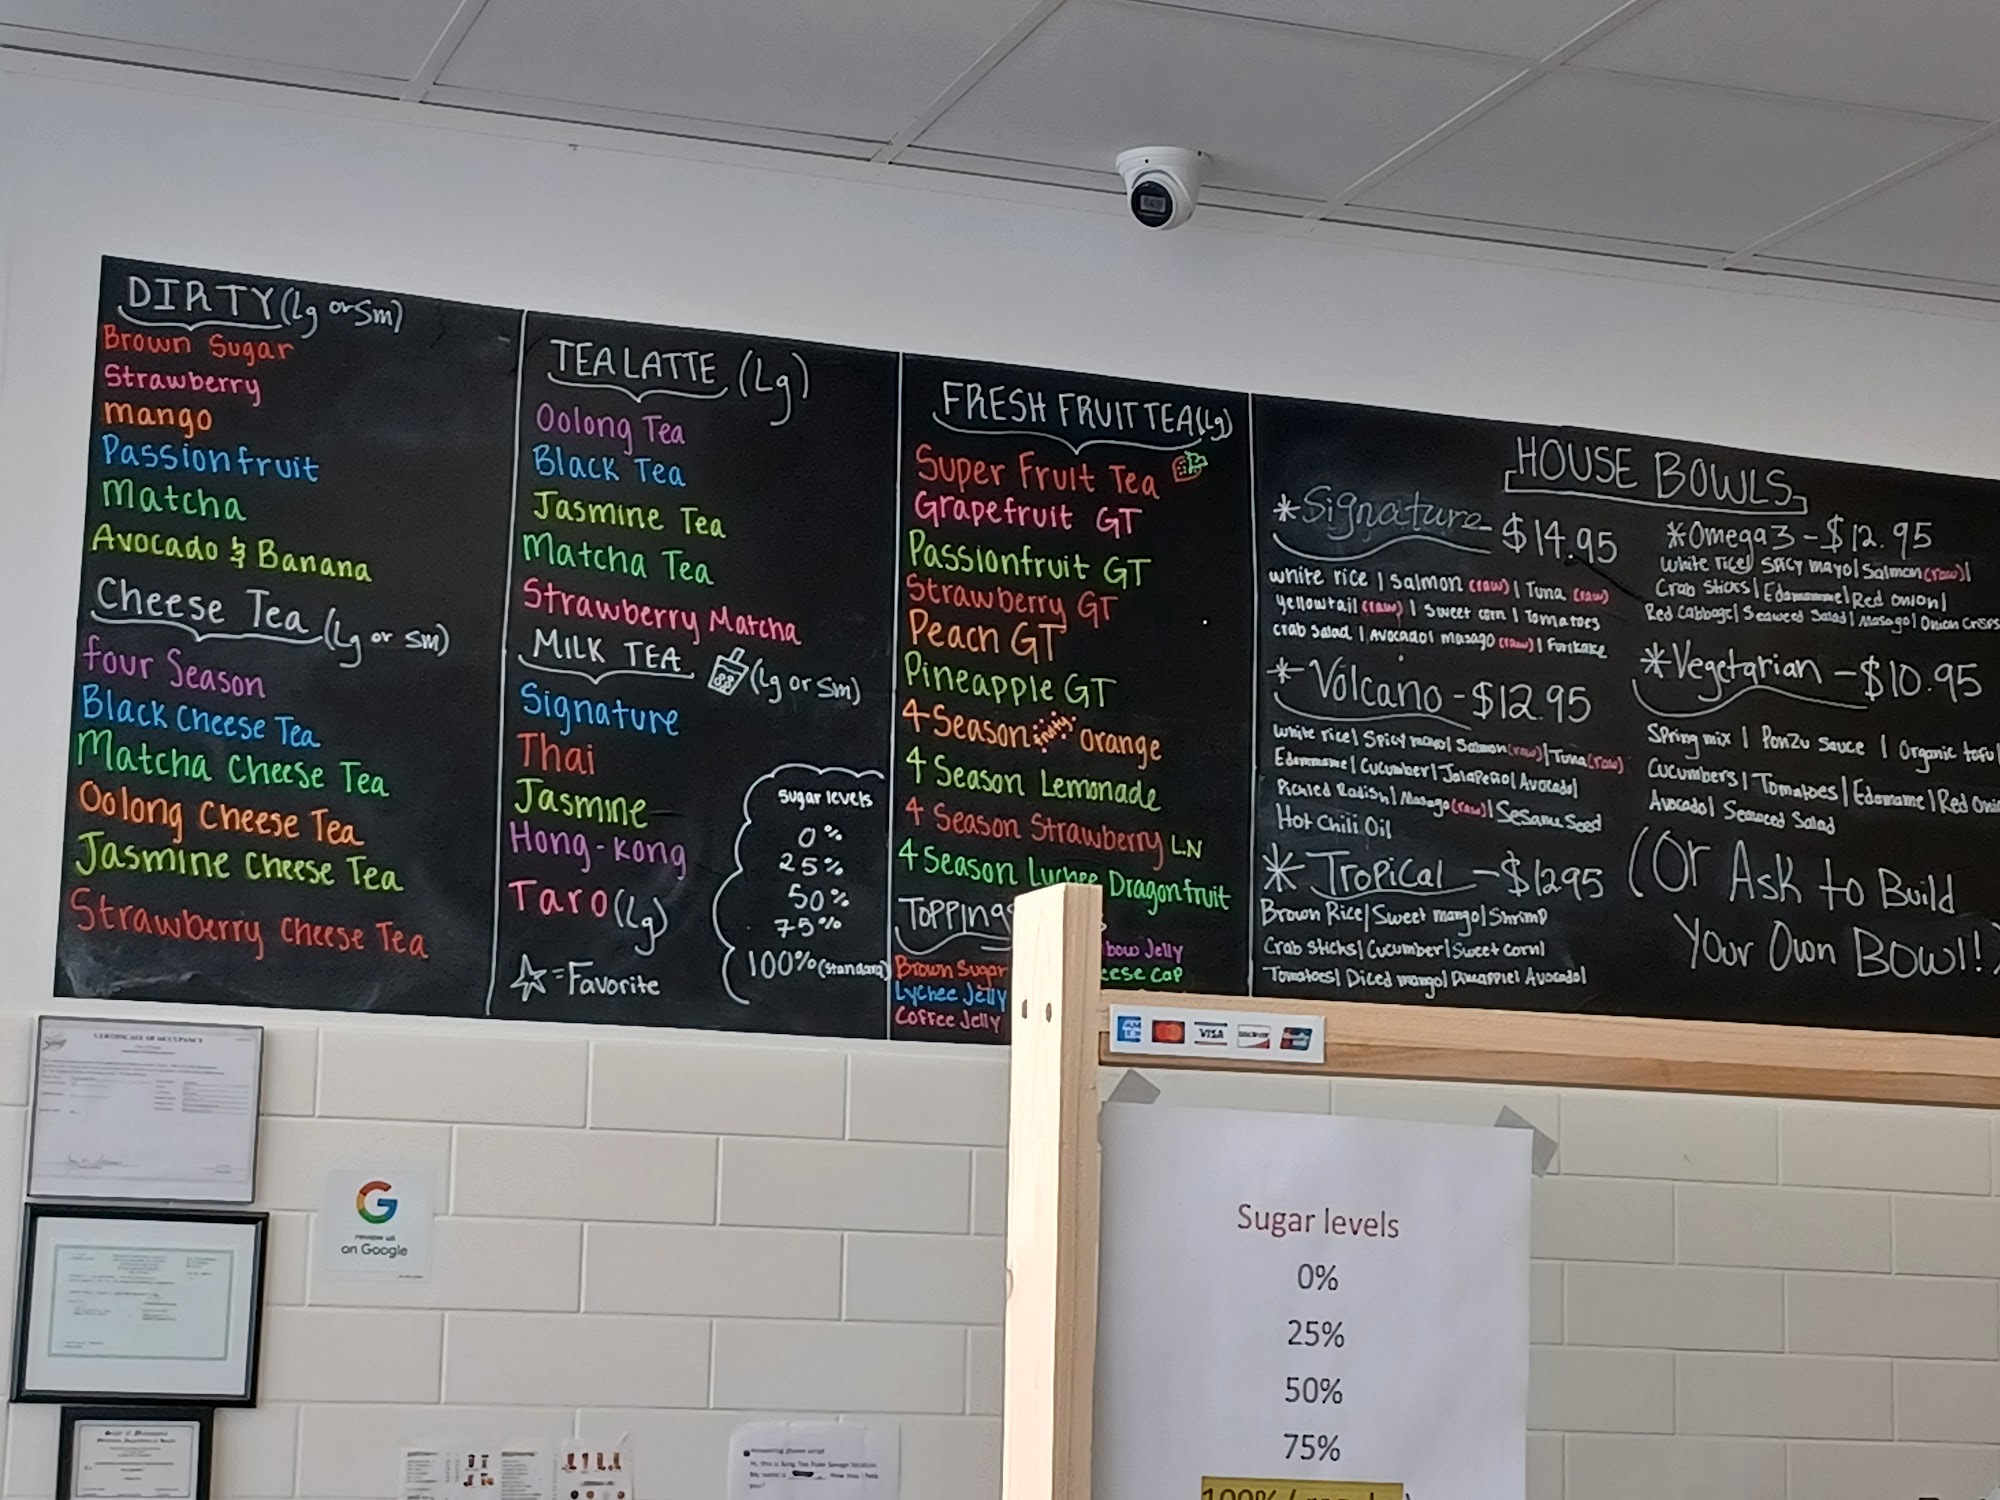 DIRTY (Lg or Sm)
Brown Sugar
Strawberry
mango
Passionfruit
Matcha
Avocado & Banana
Cheese Tea (Lg or Sm)
four Season
Black Cheese Tea
Matcha Cheese Tea
Oolong Cheese Tea
Jasmine Cheese Tea
Strawberry Cheese Tea
TEA LATTE (Lg)
Oolong Tea
Black Tea
Jasmine Tea
Matcha Tea
Strawberry Matcha
MILK TEA (Lg or Sm)
Signature
Thai
Jasmine
Hong-Kong
Taro (Lg)
☆ = Favorite
Sugar levels
0%
25%
50%
75%
100% (standard)
FRESH FRUIT TEA (Lg)
Super Fruit Tea
Grapefruit GT
Passionfruit GT
Strawberry GT
Peach GT
Pineapple GT
4 Season fruity orange
4 Season Lemonade
4 Season Strawberry L.N
4 Season Lychee Dragonfruit
TOPPING
Brown Sugar
Lychee Jelly
Coffee Jelly
bow Jelly
eese cap
HOUSE BOWLS
*Signature $14.95
white rice | Salmon (raw) | Tuna (raw)
Yellowtail (raw) | Sweet corn | Tomatoes
crab Salad | Avocado | masago (raw) | Furikake
*Volcano - $12.95
white rice | Spicy mayo | Salmon (raw) | Tuna (raw)
Edamame | Cucumber | Jalapeño | Avocado |
Pickled Radish | Masago (raw) | Sesame Seed
Hot Chili Oil
*Tropical - $12.95
Brown Rice | Sweet mango | Shrimp
Crab Sticks | Cucumber | Sweet corn |
Tomatoes | Diced mango | Pineapple | Avocado |
*Omega 3 - $12.95
white rice | Spicy mayo | Salmon (raw) |
Crab Sticks | Edamame | Red onion |
Red Cabbage | Seaweed Salad | Masago | Onion Crisps
*Vegetarian - $10.95
Spring mix | Ponzu Sauce | Organic tofu
Cucumbers | Tomatoes | Edamame | Red Oni
Avocado | Seaweed Salad
(Or Ask to Build
Your Own BOWL!)
VISA
CERTIFICATE OF OCCUPANCY
G
review us
on Google
Sugar levels
0%
25%
50%
75%